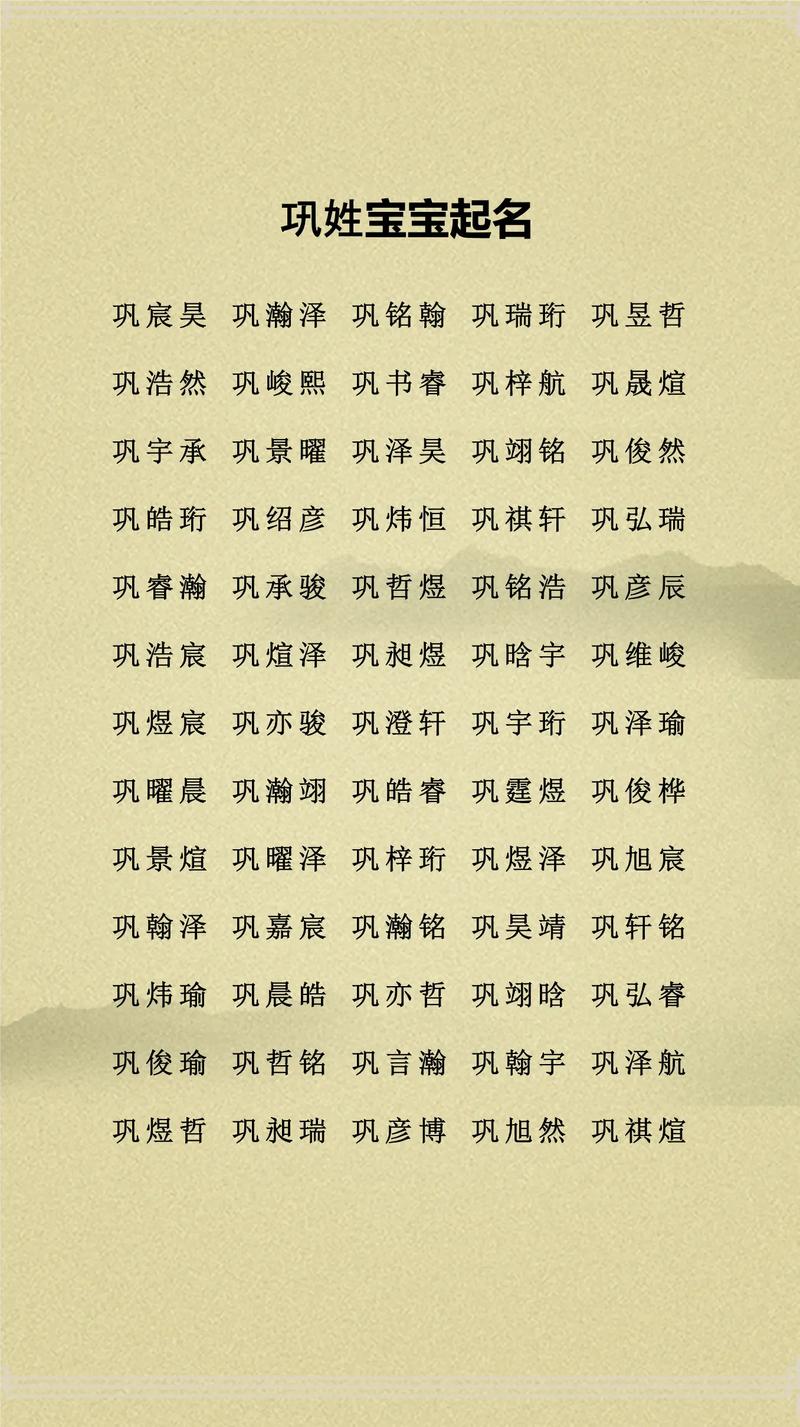 巩姓宝宝起名
巩宸昊 巩瀚泽 巩铭翰 巩瑞珩 巩昱哲
巩浩然 巩峻熙 巩书睿 巩梓航 巩晟煊
巩宇承 巩景曜 巩泽昊 巩翊铭 巩俊然
巩皓珩 巩绍彦 巩炜恒 巩祺轩 巩弘瑞
巩睿瀚 巩承骏 巩哲煜 巩铭浩 巩彦辰
巩浩宸 巩煊泽 巩昶煜 巩晗宇 巩维峻
巩煜宸 巩亦骏 巩澄轩 巩宇珩 巩泽瑜
巩曜晨 巩瀚翊 巩皓睿 巩霆煜 巩俊桦
巩景煊 巩曜泽 巩梓珩 巩煜泽 巩旭宸
巩翰泽 巩嘉宸 巩瀚铭 巩昊靖 巩轩铭
巩炜瑜 巩晨皓 巩亦哲 巩翊晗 巩弘睿
巩俊瑜 巩哲铭 巩言瀚 巩翰宇 巩泽航
巩煜哲 巩昶瑞 巩彦博 巩旭然 巩祺煊